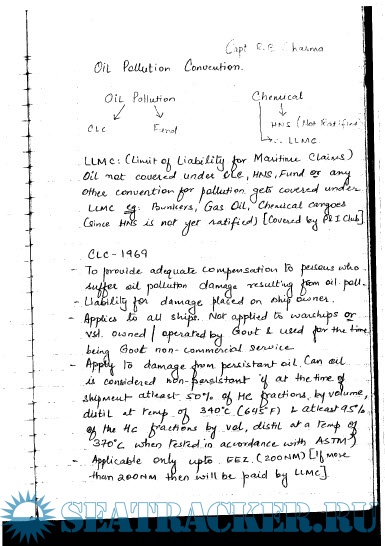 Capt. S.S. Sharma
Oil Pollution Convention.
Oil Pollution
Chemical
CLC
Fund
HNS (Not Ratified)
LLMC
LLMC: (Limit of Liability for Maritime Claims)
Oil not covered under CLC, HNS, Fund or any
other convention for pollution gets covered under
LLMC eg: Bunkers, Gas Oil, Chemical cargoes
(since HNS is not yet ratified) [Covered by P&I Club]
CLC - 1969
- To provide adequate compensation to persons who
suffer oil pollution damage resulting from oil poll.
- Liability for damage placed on ship owner.
- Applies to all ships. Not applied to warships or
vsl. owned / operated by Govt & used for the time
being Govt non-commercial service
- Apply to damage from persistant oil. (An oil
is considered non-persistent if at the time of
shipment atleast 50% of HC fractions, by volume,
distil at temp of 340°C (645°F) & atleast 95%
of the HC fractions by vol, distil at a temp of
370°C when tested in accordance with ASTM)
- Applicable only upto EEZ. (200NM) [If more
than 200NM then will be paid by LLMC]
SEATRACKER.RU